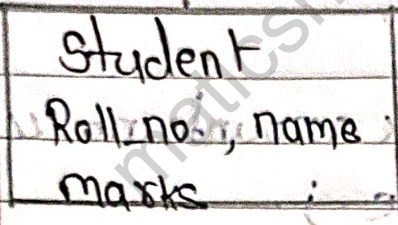 Student
Roll_no., name
marks